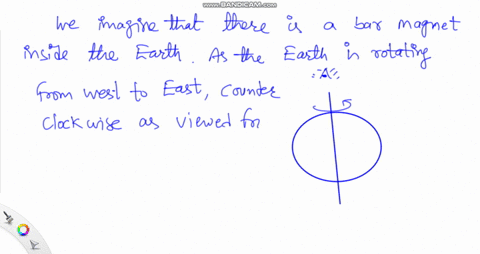 WWW.BANDICAM.COM
We imagine that there is a bar magnet
inside the Earth. As the Earth is rotating
"A"
from west to East, counter
clockwise as viewed fo